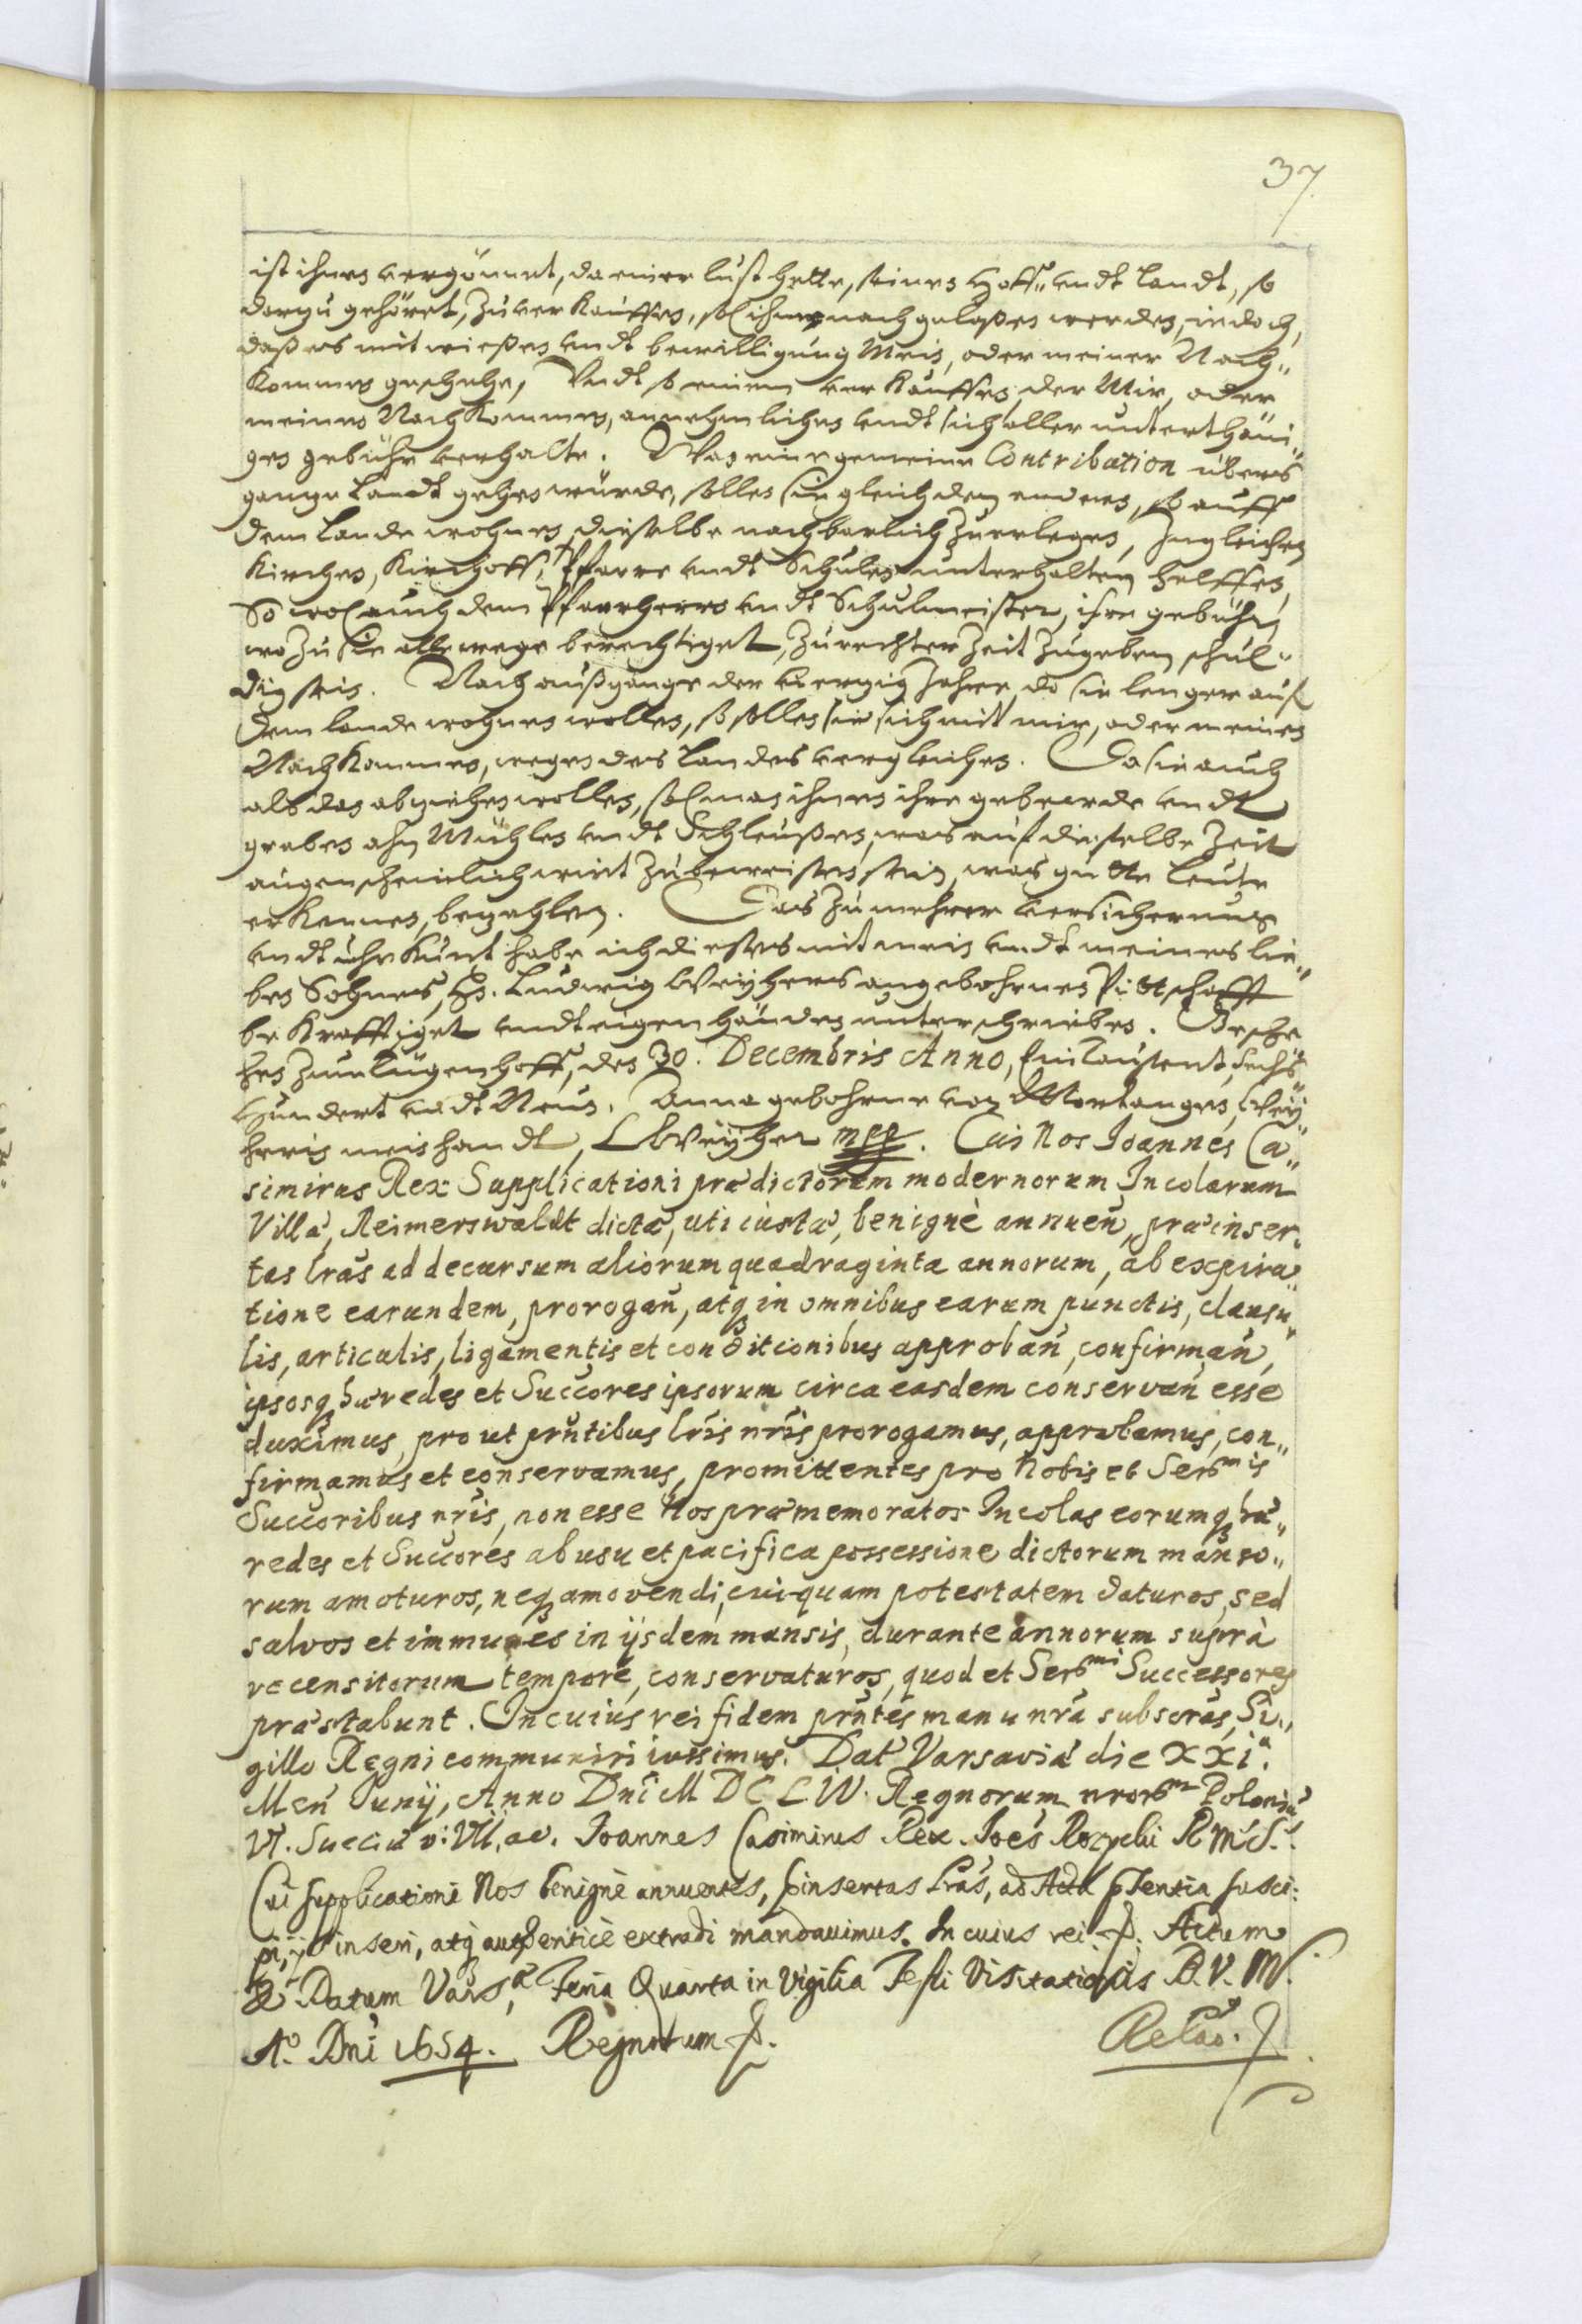 37
ist ihnen vergönnet, da einer lust hette, seinen Hoff„ vndt Landt, so
darzu gehöret, zu verkauffen, sol ihme nachgelaßen werden, iedoch,
daß es mit wießen vndt bewilligung Mein, oder meiner Nach„
kommen geschehe, Vndt so einem verkauffen, der Mir, oder
meinen Nachkommen, annehmlichen vndt sich aller unterthäni„
gen gebühr verhalte. Was eine gemeine Contribution übers
gantze Landt gehen würde, sollen sie gleich den andern, so auff
dem Lande wohnen, dieselbe nachbarlich zuerlegen, Ingleichen
Kirchen, Kirchoff, Pfarre vndt Schulen unterhalten helffen,
So wol auch dem Pfaarherrn vndt Schulmeister, ihre gebühr,
wo zu sie allewege berechtiget, zu rechter Zeit zugeben schul„
dig sein. Nach außgange der vierzig Jahre, do sie lenger auf
dem Lande wohnen wollen, so sollen sie sich mit mir, oder meinen
Nachkommen, wegen des Landes vergleichen. Da sie auch
als dan abziehen wollen, sol man ihnen ihre gebeude vndt
graben ahn Mühlen vndt Schleußen, was auf dieselbe Zeit
augenscheinlich wirt zubeweisen sein, was gutte Leute
erkennen, bezahlen. Das zu mehrer versicherung
vndt uhrkunt habe ich dieses mit mein vndt meines lie„
ben Sohnes, Hr. Ludwig Weyhers angebohrnen Pittschafft
bekrafftiget vndt eigen händen unterschrieben. Gesche„
hen zum Tügenhoff, den 30. Decembris Anno, Ein Tausent, Sechs
Hundert vndt Neun. Anna gebohrne von Mortangen, Wey„
herin mein handt, L Weyher mpp. Cui Nos Joannes Ca„
simirus Rex Supplicationi prædictorum modernorum Incolarum
Villæ, Reimerswaldt dictæ, uti iustæ, benignè annuen, præinser„
tas lras ad decursum aliorum quadraginta annorum, ab expira„
tione earundem, prorogan, atq in omnibus earum punctis, clausu„
lis, articulis, ligamentis et conditionibus approban, confirman,
ipsosq hæredes et Succores ipsorum circa easdem conservan esse
duximus, prout prntibus lris nris prorogamus, approbamus, con„
firmamus et conservamus, promittentes pro Nobis et Serbmis
Succoribus nris, non esse Nos præmemoratos Incolas eorumq hæ„
redes et Succores ab usu et pacifica possessione dictorum manso„
rum amoturos, neq amovendi, cuiquam potestatem daturos, sed
salvos et immunes in ijsdem mansis, durante annorum suprà
recensitorum tempore, conservaturos, quod et Serbmi Successores
præstabunt. In cuius rei fidem prntes manu nra subscras, Si„
gillo Regni communiri iussimus. Dat Varsaviæ die XXIa.
Men Juny, Anno Dni M DC LIV. Regnorum nrorbm Poloniæ
VI. Sueciæ vi: VII. ae. Joannes Casimirus Rex. Joes Rozycki R M S.
Cui supplicationi Nos benignè annuentes, pinsertas lras, ad Acta pſentia susci:
pi, & inseri, atq authenticè extradi mandavimus. In cuius rei &. Actum
& Datum Varsa, Feria Quarta in Vigilia Festi Visitationis B. V. M.
Ao. Dni 1654. Regnorum &.
Relao.